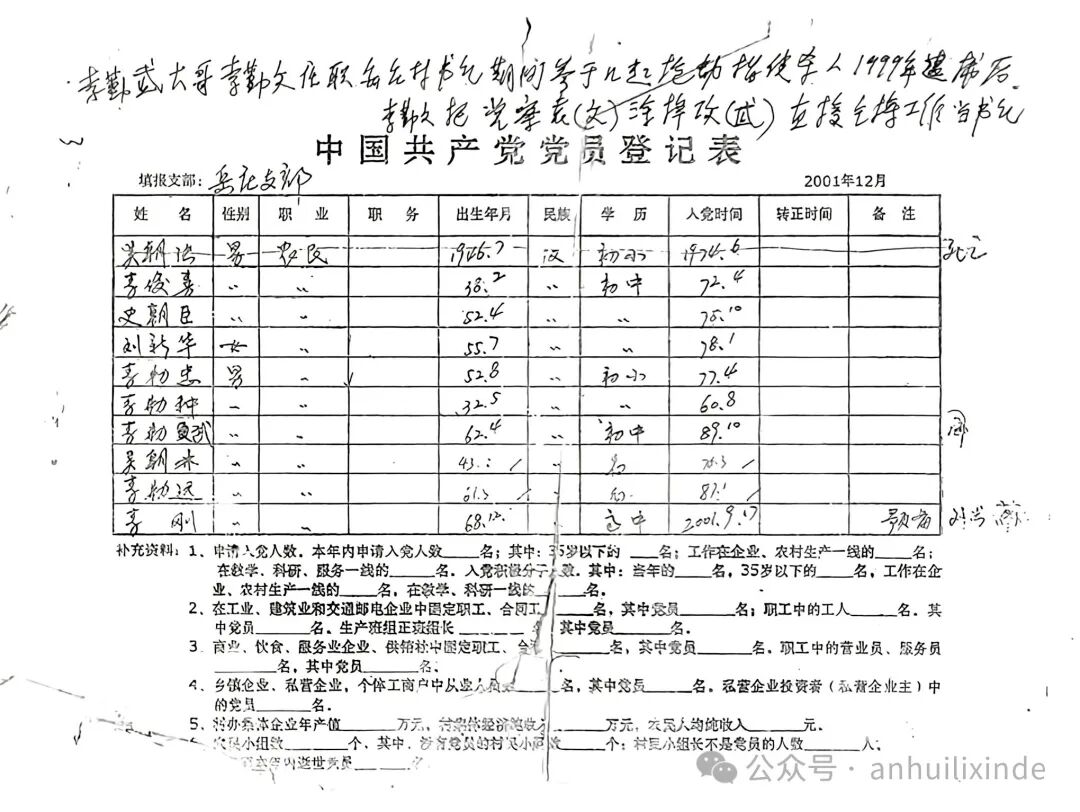 李勤武大哥李勤文任职岳庄村书记期间参于几起抢劫指使李人1999年逮捕后
李勤文把党案表(文)涂掉改(武)直接主持工作当书记
中国共产党党员登记表
填报支部：岳庄支部 2001年12月
姓 名 性别 职 业 职 务 出生年月 民族 学 历 入党时间 转正时间 备 注
吴朝 男 农民 1946.7 汉 初小 1974.6 死亡
李俊喜 〃 〃 38.2 〃 初中 72.4
史朝臣 〃 〃 52.4 〃 〃 75.10
刘新华 女 〃 55.7 〃 〃 78.1
李勤忠 男 〃 52.8 〃 初小 77.4
李勤种 〃 〃 32.5 〃 〃 60.8
李勤武 〃 〃 62.4 〃 初中 89.10
吴朝 〃 〃 43. 〃 76.3
李勤远 〃 〃 61.3 〃 87.1
李 刚 68.12. 高中 2001.9.17 预备
补充资料：1、申请入党人数。本年内申请入党人数____名；其中：35岁以下的 ___名；工作在企业、农村生产一线的____名；
在教学、科研、服务一线的_____名。入党积极分子人数。其中：当年的____名，35岁以下的_____名，工作在企
业、农村生产一线的____名，在教学、科研一线的______名。
2、在工业、建筑业和交通邮电企业中固定职工、合同工______名，其中党员______名；职工中的工人____名。其
中党员______名。生产班组正班组长________名，其中党员______名。
3、商业、饮食、服务业企业、供销社中固定职工、合______名，其中党员______名。职工中的营业员、服务员
______名，其中党员_____名；
4、乡镇企业、私营企业，个体工商户中从业人员______名，其中党员_____名。私营企业投资者（私营企业主）中
的党员______名。
5、村办集体企业年产值______万元，村集体经济纯收入______万元，农民人均纯收入_____元。
农民小组数_______个，其中，没有党员的村民小组数______个；村民小组长不是党员的人数______人；
年内逝世党员_______名。
公众号 · anhuilixinde